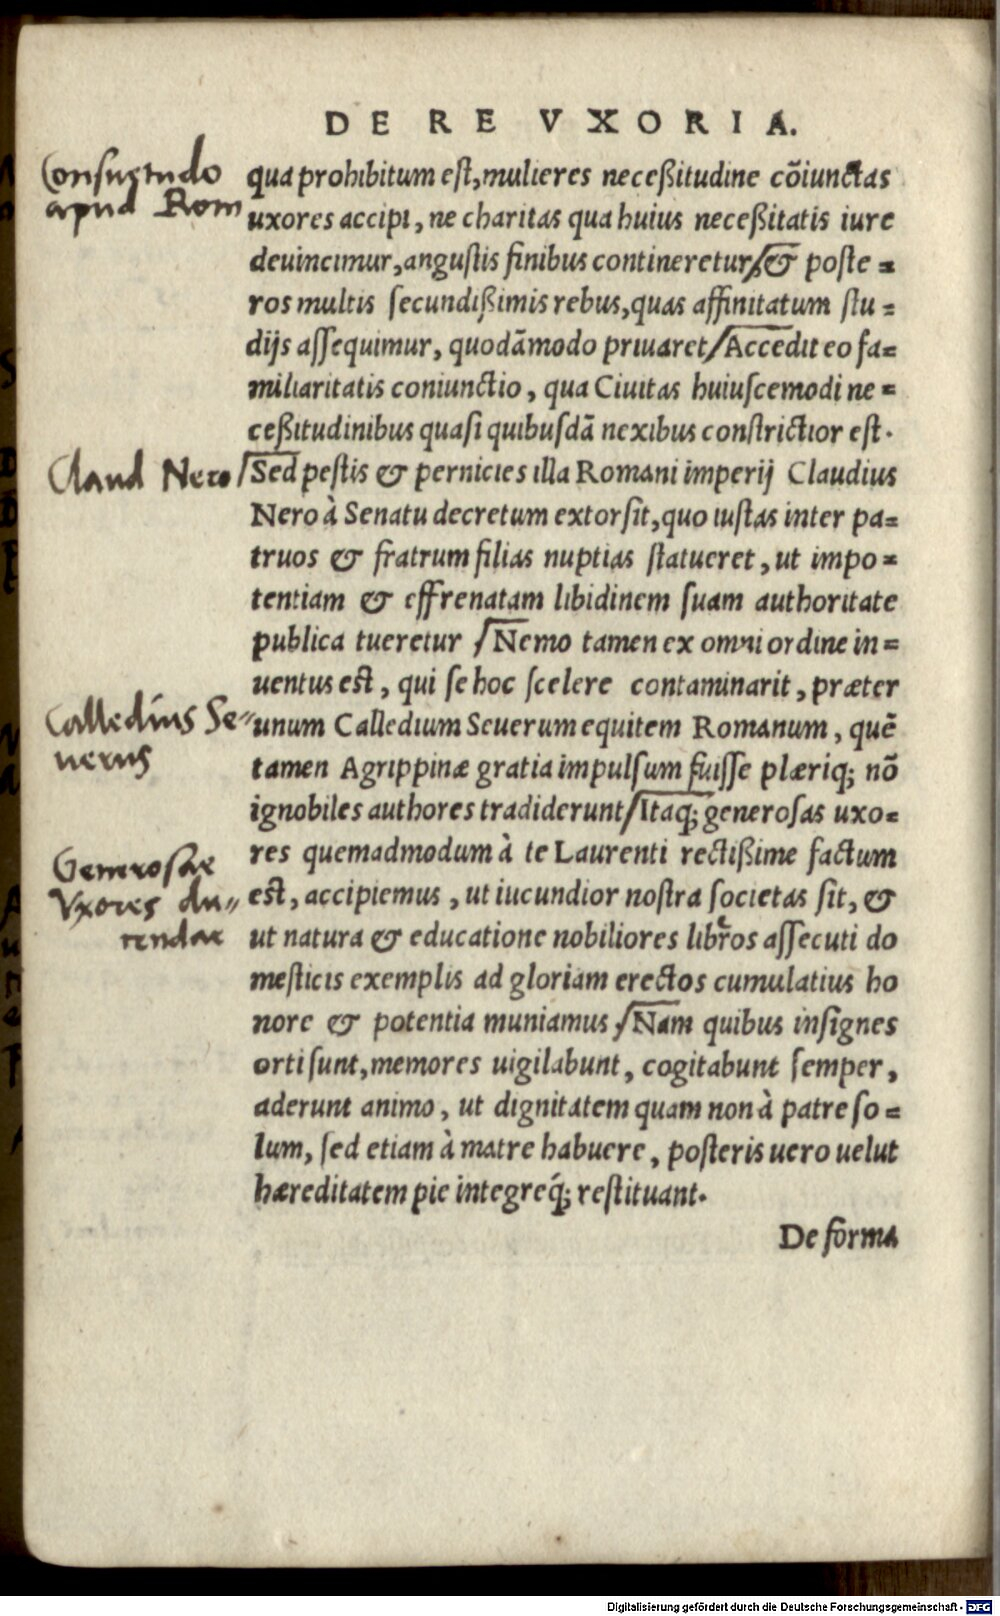 DE RE VXORIA.
Consuetudo
apud Rom
qua prohibitum est, mulieres neceßitudine cõiunctas
uxores accipi, ne charitas qua huius neceßitatis iure
deuincimur, angustis finibus contineretur, & poste=
ros multis secundißimis rebus, quas affinitatum stu=
dijs assequimur, quodãmodo priuaret/Accedit eo fa=
miliaritatis coniunctio, qua Ciuitas huiuscemodi ne=
ceßitudinibus quasi quibusdã nexibus constrictior est.
Claud Nero
Sed pestis & pernicies illa Romani imperij Claudius
Nero à Senatu decretum extorsit, quo iustas inter pa=
truos & fratrum filias nuptias statueret, ut impo=
tentiam & effrenatam libidinem suam authoritate
publica tueretur /Nemo tamen ex omni ordine in=
uentus est, qui se hoc scelere contaminarit, præter
Calledius Se"
uerus
unum Calledium Seuerum equitem Romanum, quẽ
tamen Agrippinæ gratia impulsum fuisse plæriq; nõ
ignobiles authores tradiderunt/Itaq; generosas uxo=
Generosae
Vxores du"
cendae
res quemadmodum à te Laurenti rectißime factum
est, accipiemus, ut iucundior nostra societas sit, &
ut natura & educatione nobiliores libros assecuti do
mesticis exemplis ad gloriam erectos cumulatius ho
nore & potentia muniamus /Nam quibus insignes
orti sunt, memores uigilabunt, cogitabunt semper,
aderunt animo, ut dignitatem quam non à patre so=
lum, sed etiam à matre habuere, posteris uero uelut
hæreditatem pie integreq́; restituant.
De forma
Digitalisierung gefördert durch die Deutsche Forschungsgemeinschaft - DFG